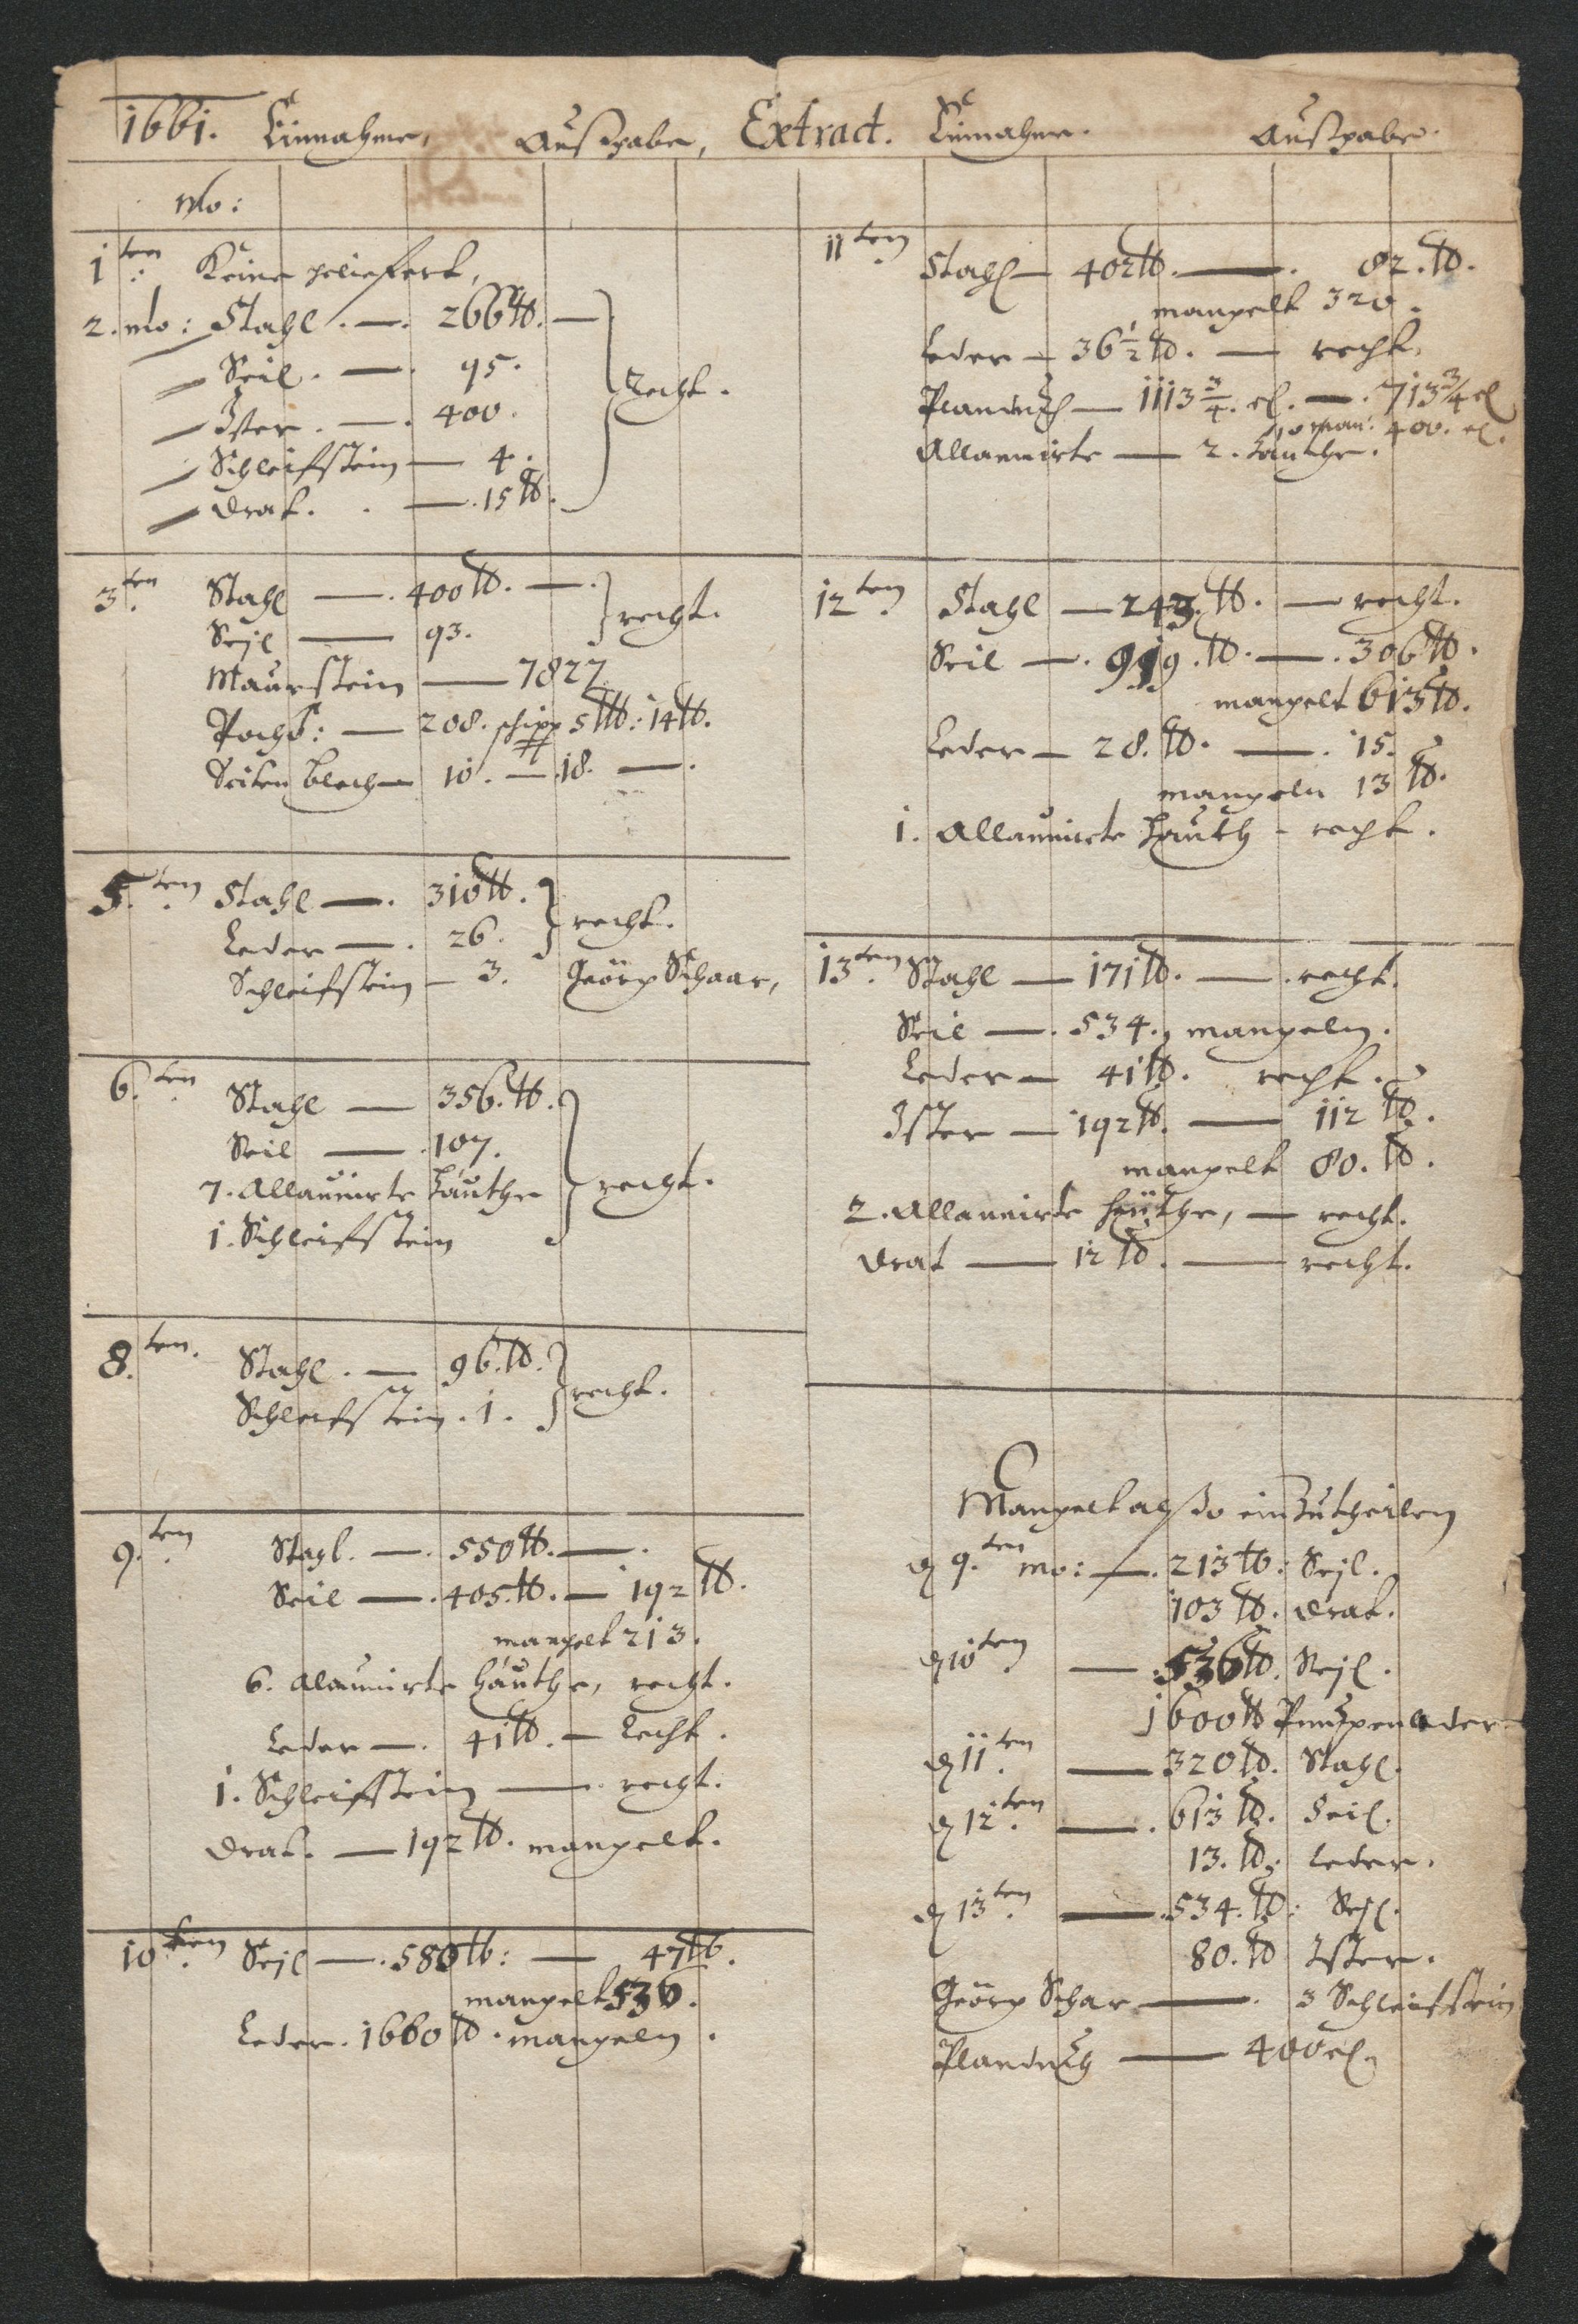 1661. Einnahme, Außgabe, Extract. Einnahme. Außgabe.
mo:
1ten Keine geliefert,
2. mo: Stahl. — 266 ℔. —
Seil. — 95.
Ister. — 400.
Schleifstein — 4.
Drat. — 15 ℔.
Recht.
3ten Stahl — 400 ℔. —
Sejl — 93.
recht.
Maurstein — 7827
— 208. schipp 5 l℔: 14 ℔.
Seiten blech — 10. — 18. —
5.ten Stahl — 310 ℔.
Leder — 26.
recht.
Schleifstein — 3. Geörg Schaar,
6.ten Stahl — 356. ℔.
Seil — 107.
7. Allaunirte häuthe
1. Schleifstein
recht.
8.ten. Stahl. — 96. ℔.
Schleifstein. 1.
recht.
9.ten Stahl. — 550 ℔. —
Seil — 405. ℔. — 192 ℔.
mangelt 213.
6. Alaunirte häuthe, recht.
Leder — 41 ℔. — Recht.
1. Schleifstein — recht.
Drat. — 192 ℔. mangelt.
10ten Sejl — 580 ℔: — 47 ℔.
mangelt 536.
Leder. 1660 ℔. mangeln.
11ten Stahl — 402 ℔. — 82. ℔.
mangelt 320.
Leder — 36 1/2 ℔. — recht.
— 1113 3/4. el. — 713 3/4 el
man: 400. el.
Allaunirte — 2. häuthe.
12ten Stahl — 243. ℔. — recht.
Seil — 919. ℔. — 306 ℔.
mangelt 613 ℔.
Leder — 28. ℔. — 15.
mangeln 13 ℔.
1. Allaunirte Hauth - recht.
13ten Stahl — 171 ℔. — recht.
Seil — 534., mangeln.
Leder — 41 ℔. recht.
Ister — 192 ℔. — 112 ℔.
mangelt 80. ℔.
2. Allaunirte heüthe, — recht.
Drat — 12 ℔. — recht.
Mangelt also einzutheilen
d 9.ten mo: — 213 ℔: Sejl.
103 ℔. Drat.
d 10ten — 536 ℔. Sejl.
1600 ℔ Pumpenleder
d 11ten — 320 ℔. Stahl.
d 12.ten — 613 ℔. Seil.
13. ℔. Leder.
d 13ten — 534. ℔: Sejl.
80. ℔ Ister.
Geörg Schar — 3 Schleifstein
— 400 el.